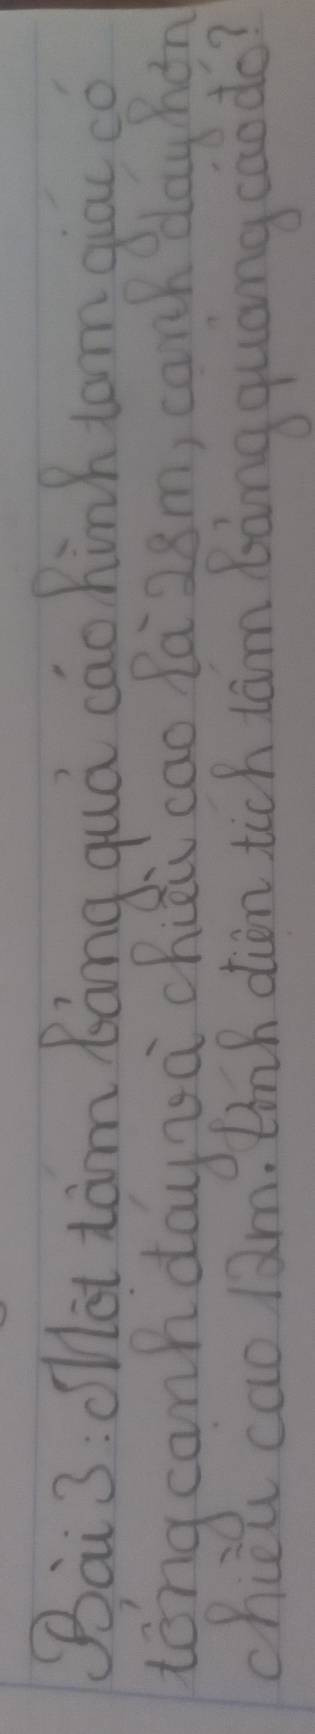 Bài 3: Một tấm bảng quả cáo hình tam giác có
tổng cạnh đáy và chiều cao là 28m, cạnh đáy hơn
chiều cao 12m. Tính diện tích tấm bảng quảng cáo đó?